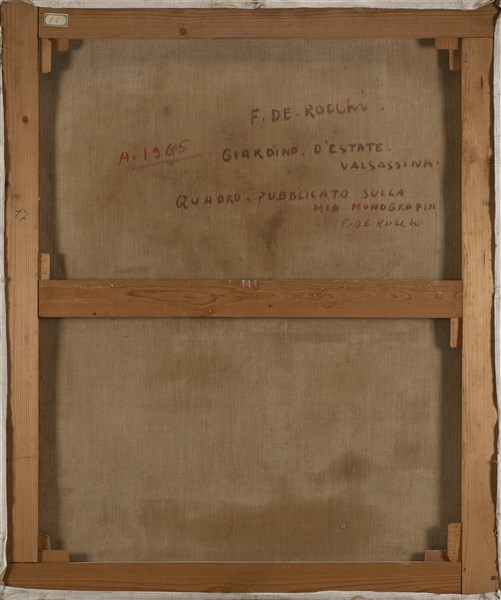 F. DE-ROCCHI.
A. 1965
GIARDINO. D'ESTATE.
VALSASSINA.
QUADRO. PUBBLICATO SULLA
MIA MONOGRAFIA
F. DE ROCCHI